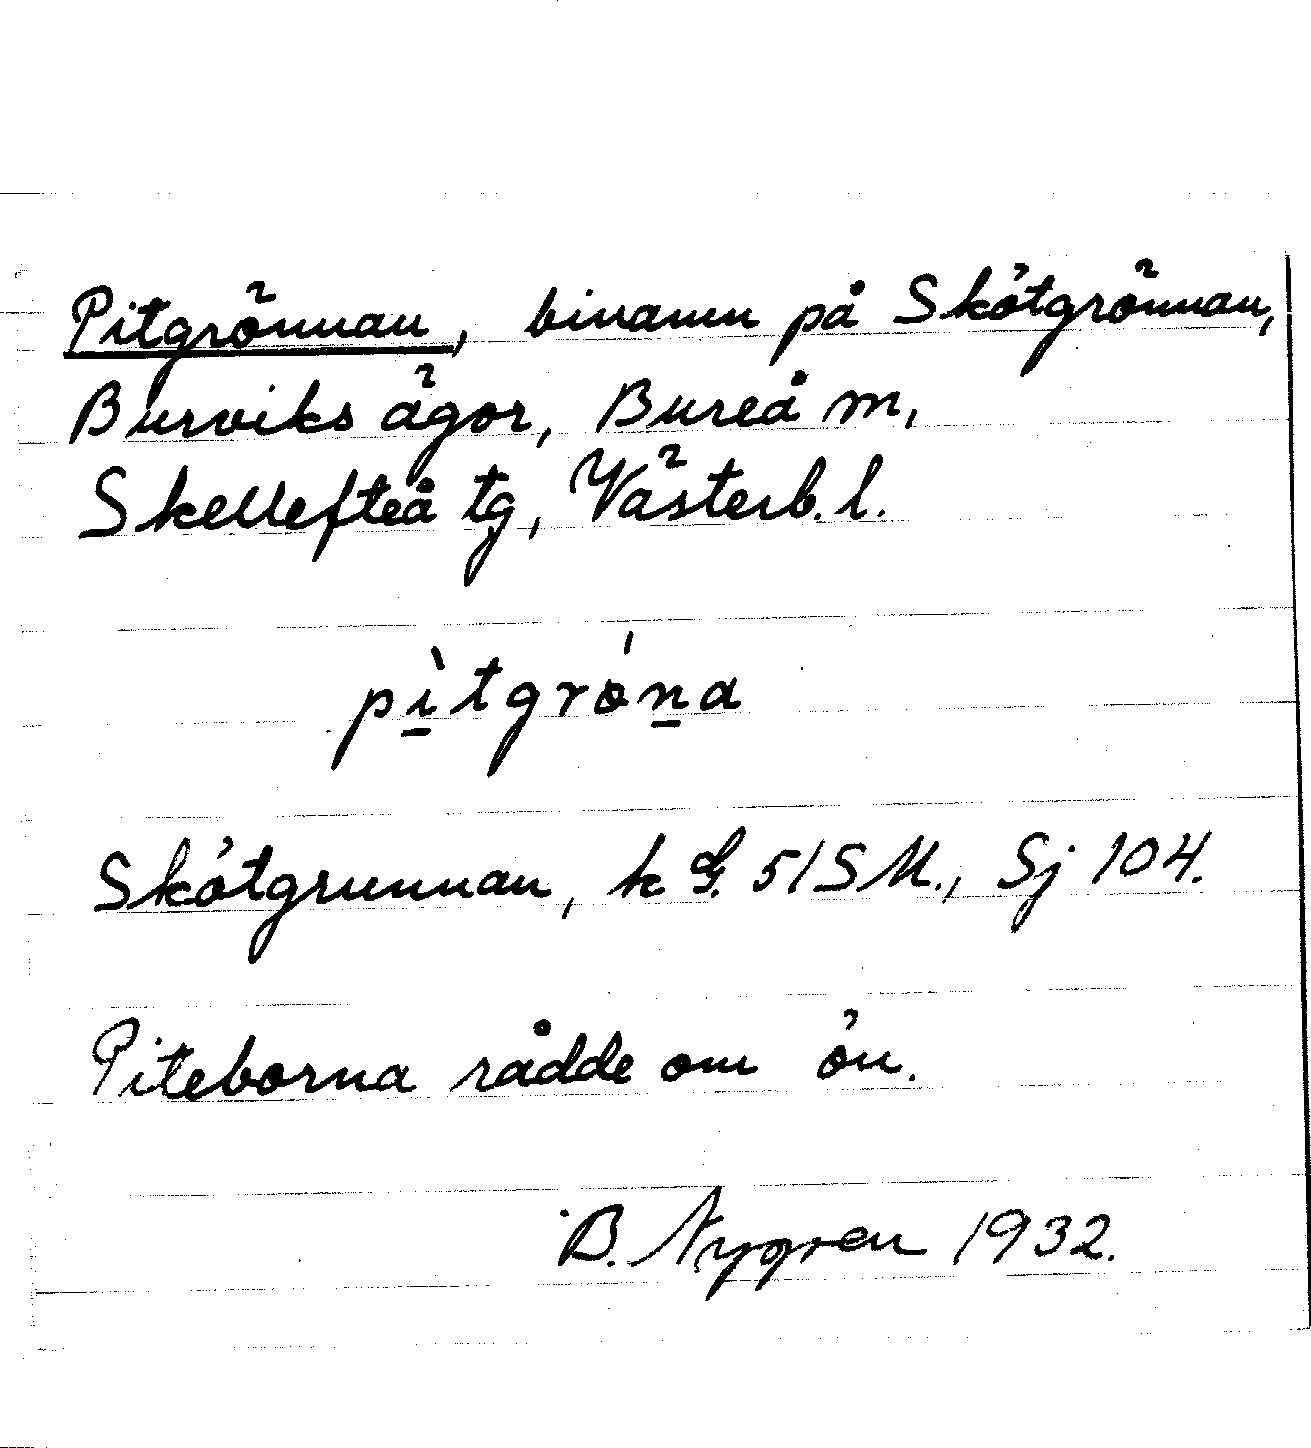 Pitgrönnan, binamn på Skötgrönnan,
Burviks ägor, Bureå m,
Skellefteå tg, Västerb. l.
pìtgróna
Skötgrunnan, k G. 51 S M., Sj 104.
Piteborna rådde om ön.
B. Nygren 1932.